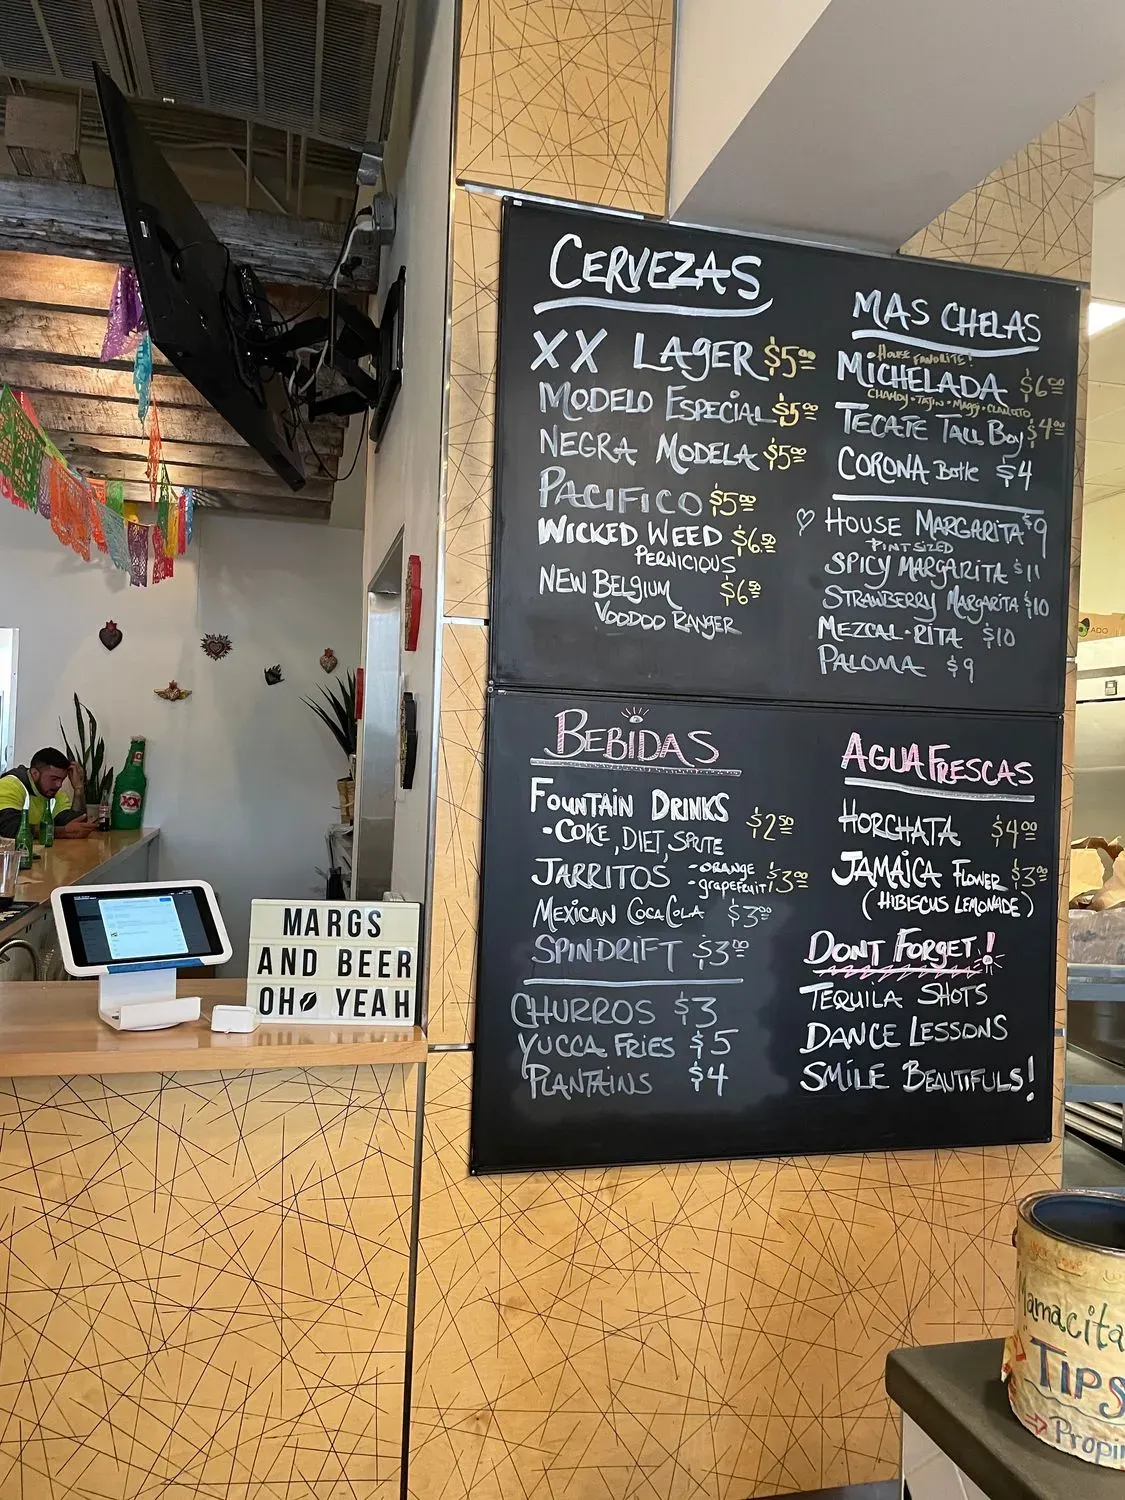 CERVEZAS
XX LAGER $5.00
MODELO ESPECIAL $5.00
NEGRA MODELA $5.00
PACIFICO $5.00
WICKED WEED $6.50
PERNICIOUS
NEW BELGIUM $6.50
VOODOO RANGER
MAS CHELAS
HOUSE FAVORITE!
MICHELADA $6.00
CHAMOY • TAJIN • MAGGI • CLAMATO
TECATE TALL BOY $4.00
CORONA Bottle $4
HOUSE MARGARITA $9
PINT SIZED
SPICY MARGARITA $11
STRAWBERRY MARGARITA $10
MEZCAL-RITA $10
PALOMA $9
BEBIDAS
FOUNTAIN DRINKS $2.50
-COKE, DIET, SPRITE
JARRITOS -ORANGE $3.00
-grapefruit
MEXICAN COCA COLA $3.00
SPINDRIFT $3.00
CHURROS $3
YUCCA FRIES $5
PLANTAINS $4
AGUA FRESCAS
HORCHATA $4.00
JAMAICA FLOWER $3.00
(HIBISCUS LEMONADE)
DONT FORGET!
TEQUILA SHOTS
DANCE LESSONS
SMILE BEAUTIFULS!
XX
MARGS
AND BEER
OH YEAH
ADO
Mamacita
TIPS
Propin